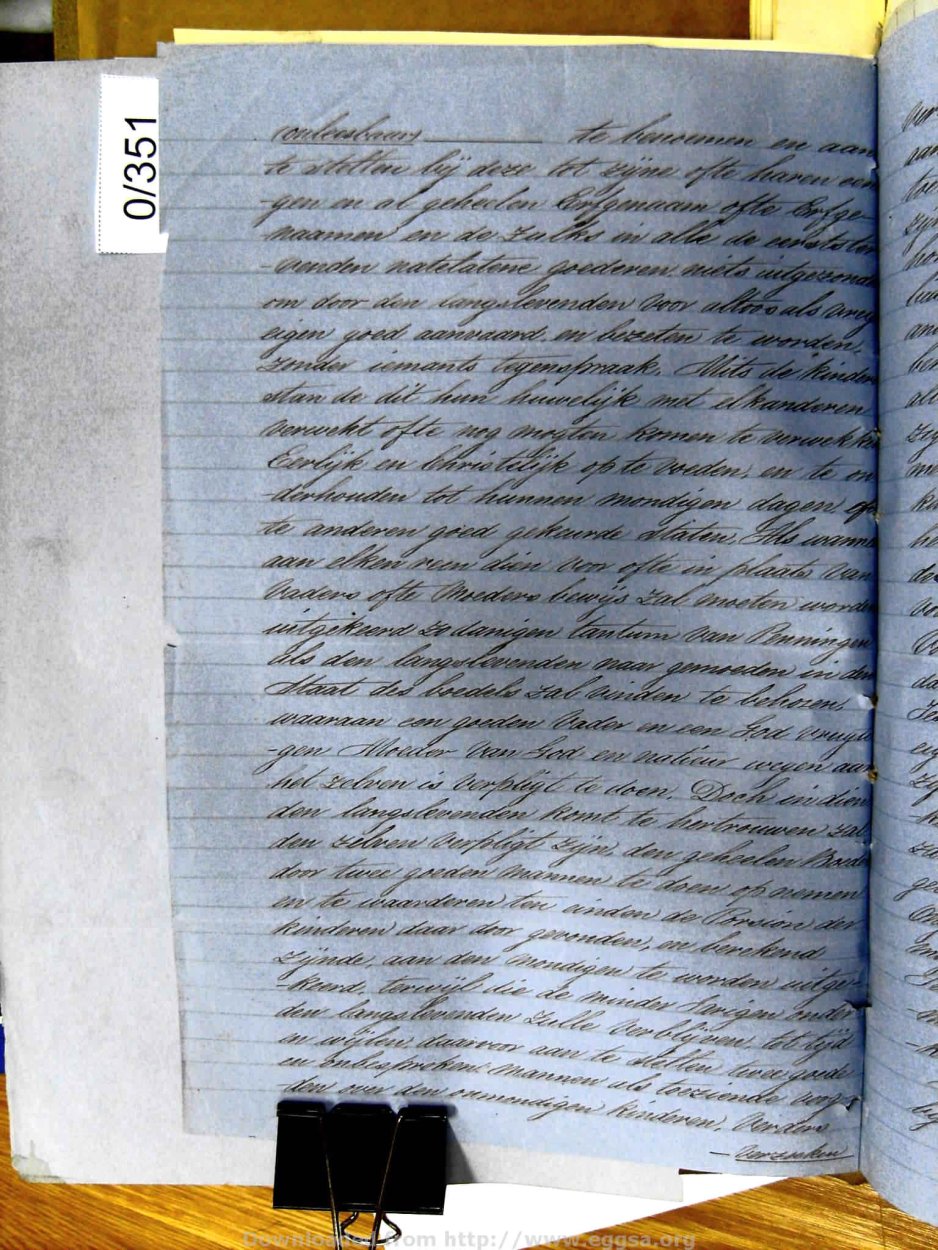 0/351
onleesbaar te benoemen en aan
te stellen bij deze tot zijne ofte haren een
-gen en al geheelen Erfgenaam ofte Erfge-
naamen en de zulks in alle de eerststen
-venden natelatene goederen niets uitgezond
om door den langslevenden voor altoos als vry
eigen goed aanvaard en bezeten te worden,
zonder iemants tegenspraak. Mits de kinder
staande dit hun huwelijk met elkanderen
verwekt ofte nog mogten komen te verwekken
Eerlijk en Christelijk op te voeden, en te on
-derhouden tot hunnen mondigen dagen, of
te anderen goed gekeurde staten. Als wanne
aan elken een dien voor ofte in plaats van
Vaders ofte Moeders bewijs zal moeten worde
uitgekeerd zodanigen tantum van Penningen
als den langslevenden naar gemoeden in de
Staat des boedels zal vinden te behoren,
waaraan een goeden Vader en een God vruzi
-gen Moeder van God en natuur wegen aan
het zelven is verpligt te doen. Doch indien
den langslevenden komt te hertrouwen zal
den zelven verpligt zijn, den geheelen Boede
door twee goeden mannen te doen op nemen
en te waarderen ten einden de Porsion der
kinderen daar door gevonden, en berekend
zijnde, aan den mondigen te worden uitge-
-keerd, terwijl die de minder Jarigen onder
den langslevenden zulle verblijven, tot tijd
en wijlen, daarvoor aan te stellen twee goede
en onbesproken mannen als toeziende voog-
den over den onmondigen kinderen. Verders
- Verzoeken
Downloaded from http://www.eggsa.org